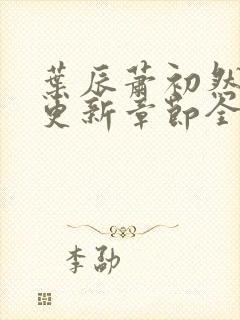 葉辰蕭初然
更新章節全
李勐